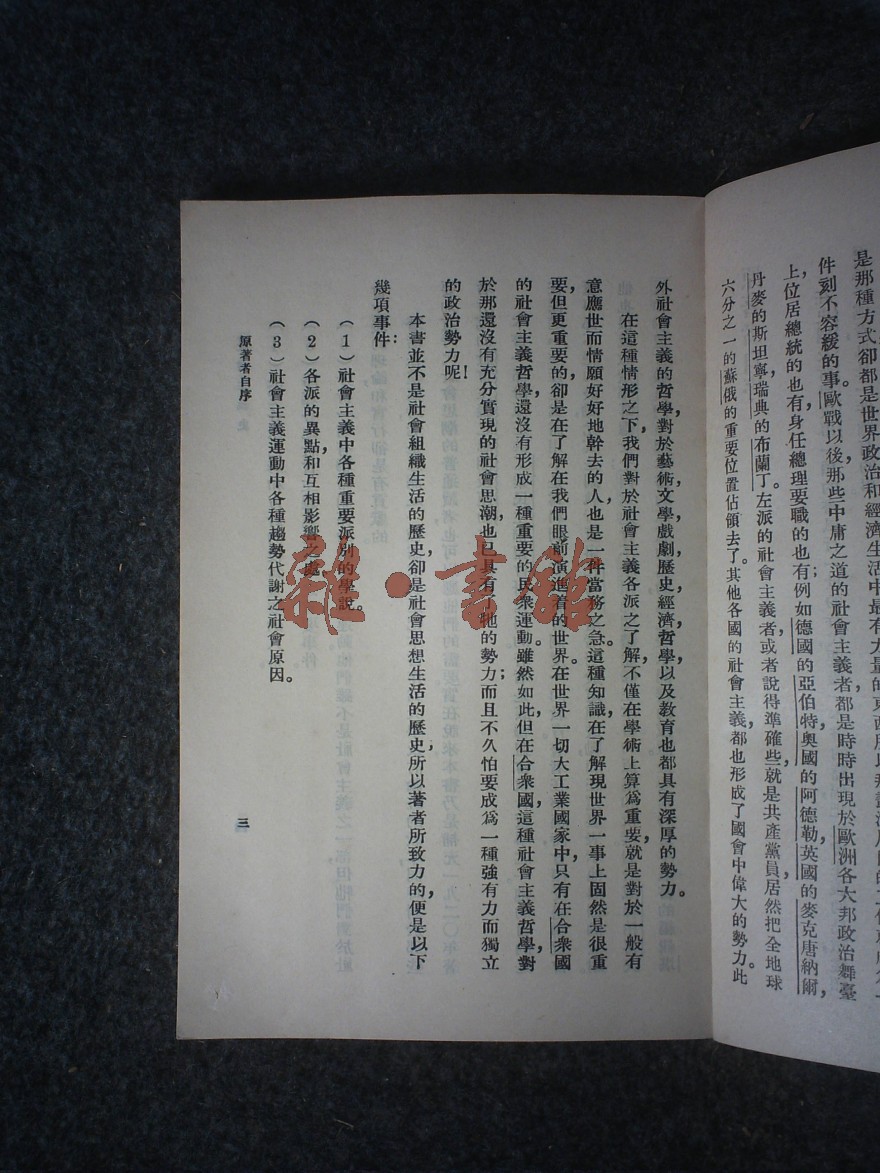 是那種方式卻都是世界政治和經濟生活中最有力量的東西
件刻不容緩的事。歐戰以後，那些中庸之道的社會主義者都是時時出現於歐洲各大邦政治舞臺
上，位居總統的也有，身任總理要職的也有；例如德國的亞伯特，奧國的阿德勒，英國的麥克唐納爾，
丹麥的斯坦寧，瑞典的布蘭丁。左派的社會主義者，或者說得準確些，就是共產黨員，居然把全地球
六分之一的蘇俄的重要位置佔領去了。其他各國的社會主義，都也形成了國會中偉大的勢力。此
外社會主義的哲學，對於藝術，文學，戲劇，歷史，經濟，哲學，以及教育也都具有深厚的勢力。
在這種情形之下，我們對於社會主義各派之了解，不僅在學術上算爲重要，就是對於一般有
意應世而情願好好地幹去的人，也是一件當務之急。這種知識，在了解現世界一事上固然是很重
要，但更重要的，卻是在了解在我們眼前演進着的世界。在世界一切大工業國家中，只有在合衆國
的社會主義哲學，還沒有形成一種重要的民衆運動。雖然如此，但在合衆國，這種社會主義哲學，對
於那還沒有充分實現的社會思潮，也已具有牠的勢力；而且不久怕要成爲一種強有力而獨立
的政治勢力呢！
本書並不是社會組織生活的歷史，卻是社會思想生活的歷史；所以著者所致力的，便是以下
幾項事件：
（1）社會主義中各種重要派別的學說。
（2）各派的異點和互相影響之處。
（3）社會主義運動中各種趨勢代謝之社會原因。
原著者自序
三
雜·書館